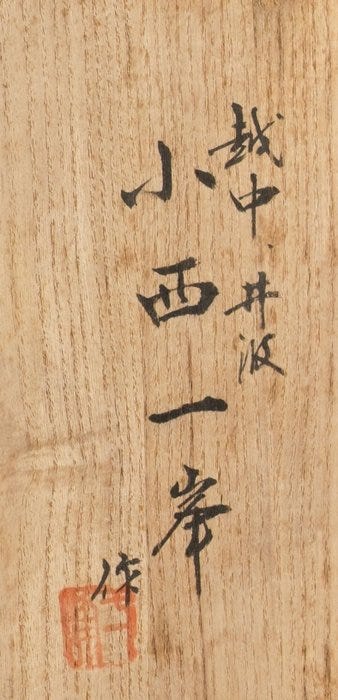 越中、井波
小西一峯
作